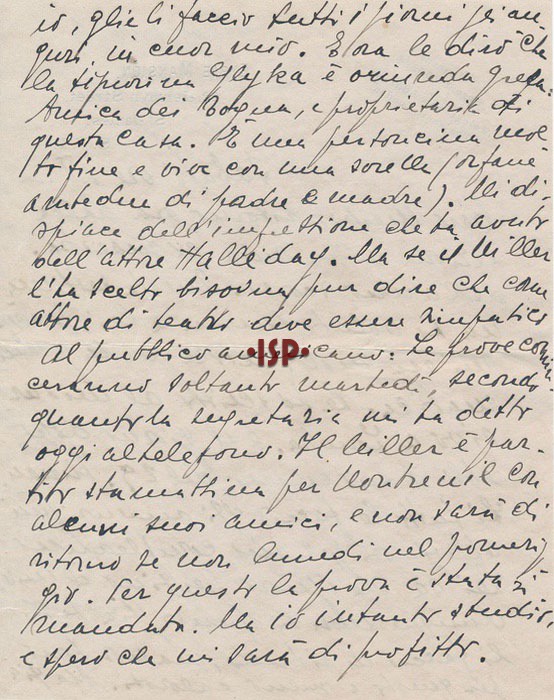 io, glieli faccio tutti i giorni gli au-
guri, in cuor mio. E ora le dirò che
la signorina Glyka è oriunda greca.
Amica dei           , e proprietaria di
questa casa. È una personcina mol-
to fine e vive con una sorella (orfane
ambedue di padre e madre). Mi di-
spiace dell'impressione che ha avuto
dell'attore Halliday. Ma se il Miller
l'ha scelto bisogna pur dire che come
attore di teatro deve essere simpatico
al pubblico americano. Le prove comin-
ceranno soltanto martedì, secondo
quanto la segretaria mi ha detto
oggi al telefono. Il Miller è par-
tito stamattina per Montreuil con
alcuni suoi amici, e non sarà di
ritorno se non lunedì nel pomerig-
gio. Per questo la prova è stata ri-
mandata. Ma io intanto studio,
e spero che mi sarà di profitto.
•ISP•